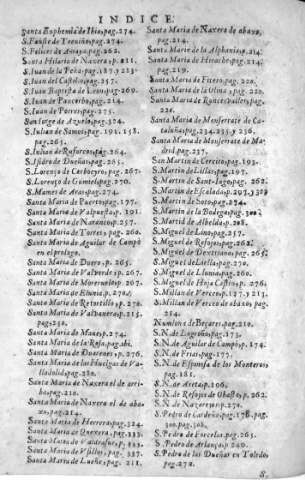 INDICE
Santa Euphemia de Ibio, pag. 274.
S. Fauste de Treuiño, pag. 274.
S. Felices de Amaya, pag. 262.
Santa Hilaria de Naxera, p. 211.
S. Iuan de la Peña, pag. 187. y 223.
S. Iuan del Castello, pag. 257.
S. Iuan Baptista de Leon, pag. 260.
S. Iuan de Pancorbo, pag. 214.
S. Iuan de Porres, pag. 275.
San Iorge de pag. 274.
S. Iulian de Samos, pag. 191. 258.
pag. 263.
S. Iulian de pag. 264.
S. Isidro de Dueñas, pag. 265.
S. Lorenço de Carboeyro, pag. 267.
S. Lorenço de Gumiel, pag. 270.
S. Mames de pag. 274.
Santa Maria de Puerto, pag. 177.
Santa Maria de pag. 201.
Santa Maria de Naranco, pag. 257.
Santa Maria de Torres, pag. 260.
Santa Maria de Aguilar de Campò
en el prologo.
Santa Maria de Duero, p. 265.
Santa Maria de Valverde, p. 267.
Santa Maria de Moreruela, p. 207.
Santa Maria de p. 270.
Santa Maria de Retortillo, p. 278.
Santa Maria de Valbanera, p. 215.
pag, 230.
Santa Maria de Maue, p. 274.
Santa Maria de la Rosa, pag. ibi.
Santa Maria de p. 276.
Santa Maria de las Huelgas de Valladolid, pag. 280.
Santa Maria de Naxera el de arriba, pag. 210.
Santa Maria de Naxera el de abaxo, pag. 214.
Santa Maria de Herrera, pag. 324.
Santa Maria de pag. 333.
Santa Maria de pag. 333.
Santa Maria de pag. 337.
Santa Maria de pag. 211.
Santa Maria de Naxera de abaxo,
pag. 214.
Santa Maria de la Alphania, p. 214.
Santa Maria de Hirache, pag. 214.
pag. 219.
Santa Maria de Fitero, pag. 220.
Santa Maria de la Oliua, pag. 220.
Santa Maria de Ronceualles, pag.
226.
Santa Maria de Monserrate de Cataluña, pag. 234. 235. y 236.
Santa Maria de Monserrate de Madrid. pag. 237.
San Martin de Cercito, pag. 193.
S. Martin de Lillas, pag. 197.
S. Martin de pag. 262.
S. Martin de Escalada,
S. Martin de Soto, pag. 274.
S. Martin de la Bodega, pag. 300.
S. Martin de Albelda, p. 208.
S. Miguel de Lino, pag. 257.
S. Miguel de Refojos, pag. 262.
S. Miguel de pag. 265.
S. Miguel de pag. 270.
S. Miguel de pag. 260.
S. Miguel de p. 276.
S. Millan de Verceo, p. 127. y 213.
S. Millan de Verceo de abaxo, pag.
214.
Numbros de Begares, pag. 210.
S. N. de pag. 173.
S. N. de Aguilar de Campò, p. 174.
S. N. de Frias, pag. 177.
S. N. de Espinosa de los Monteros,
pag. 181.
S. N. de Areta, p. 206.
S. N. de Refojos de Basto, p. 262
S. N. de Nazara, pag. 277.
S. Pedro de Cardeña, pag. 178. pag.
300. pag. 308.
S. Pedro de Forcelas, pag. 265.
S. Pedro de Arlança, p. 240.
S. Pedro de los Dueñas en Toledo,
pag. 272.
S.